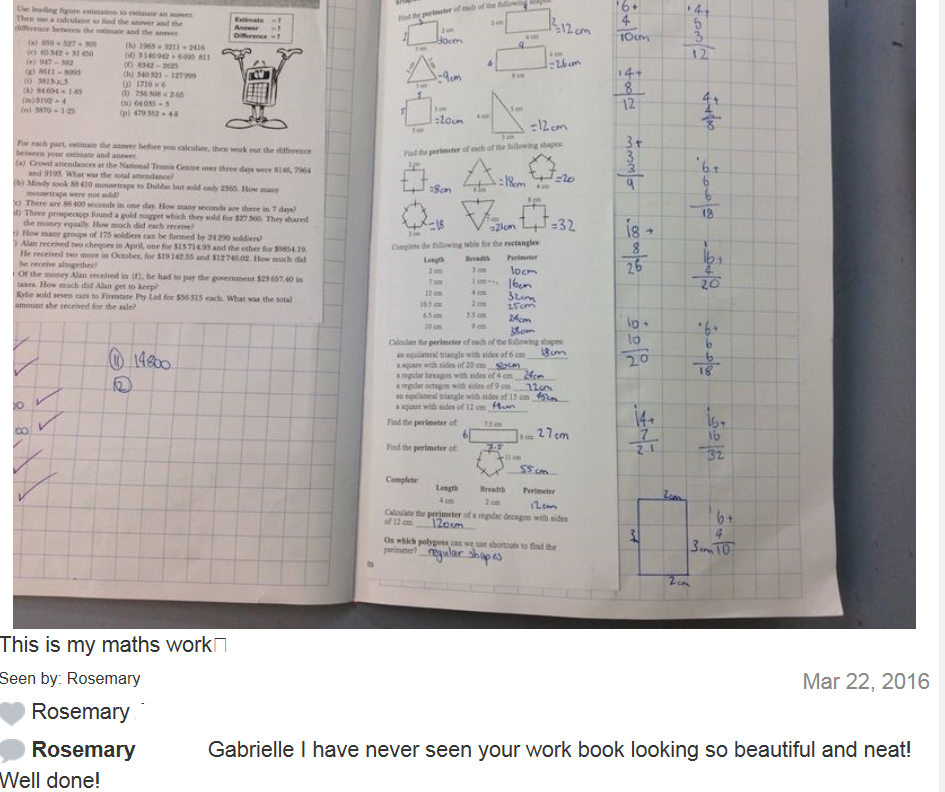 Use leading figure estimation to estimate an answer.
Then use a calculator to find the answer and the
difference between the estimate and the answer.
Estimate = ?
Answer = ?
Difference = ?
(a) 658 + 527 + 305
(b) 1963 + 3211 + 2416
(c) 65 342 + 31 450
(d) 3 140 942 + 6 095 811
(e) 947 – 382
(f) 8342 – 2625
(g) 8611 – 8093
(h) 340 321 – 127 999
(j) 1716 × 6
(k) 84 694 × 1·85
(l) 736 308 × 2·65
(m) 8192 ÷ 4
(n) 64 035 ÷ 5
(o) 3870 ÷ 1·25
(p) 479 352 ÷ 4·8
For each part, estimate the answer before you calculate, then work out the difference
between your estimate and answer.
(a) Crowd attendances at the National Tennis Centre over three days were 8146, 7964
and 9193. What was the total attendance?
(b) Mindy took 88 410 mousetraps to Dubbo but sold only 2365. How many
mousetraps were not sold?
There are 86 400 seconds in one day. How many seconds are there in 7 days?
Three prospectors found a gold nugget which they sold for $27 360. They shared
the money equally. How much did each receive?
How many groups of 175 soldiers can be formed by 24 290 soldiers?
Alan received two cheques in April, one for $13 714.93 and the other for $9854.19.
He received two more in October, for $19 142.55 and $12 740.02. How much did
he receive altogether?
Of the money Alan received in (f), he had to pay the government $23 657.40 in
taxes. How much did Alan get to keep?
Kylie sold seven cars to Firstate Pty Ltd for $56 315 each. What was the total
amount she received for the sale?
(11) 14800
(12)
Find the perimeter of each of the following shapes:
10cm
=12cm
=9cm
=26cm
=20cm
=12cm
Find the perimeter of each of the following shapes:
=8cm
=18cm
=20
=18
=21cm
=32
Complete the following table for the rectangles:
Length Breadth Perimeter
2 cm 3 cm 10cm
7 cm 1 cm 16cm
12 cm 4 cm 32cm
10.5 cm 2 cm 25cm
6.5 cm 5.5 cm 24cm
10 cm 9 cm 38cm
Calculate the perimeter of each of the following shapes:
an equilateral triangle with sides of 6 cm 18cm
a square with sides of 20 cm 80cm
a regular hexagon with sides of 4 cm 24cm
a regular octagon with sides of 9 cm 72cm
an equilateral triangle with sides of 15 cm 45cm
a square with sides of 12 cm
Find the perimeter of:
7.5 cm
6 6 cm 27cm
Find the perimeter of:
11 cm
55cm
Complete:
Length Breadth Perimeter
4 cm 2 cm 12cm
Calculate the perimeter of a regular decagon with sides
of 12 cm. 120cm
On which polygons can we use shortcuts to find the
perimeter? regular shapes
6+
4
10cm
4+
5
3
12
14+
8
12
4+
4
8
3+
3
3
9
6+
6
6
18
18+
8
26
16+
4
20
10+
10
20
6+
6
6
18
14+
7
21
16+
16
32
2cm
3
3cm
2cm
6+
4
10
This is my maths work
Seen by: Rosemary
Mar 22, 2016
Rosemary
Rosemary Gabrielle I have never seen your work book looking so beautiful and neat!
Well done!